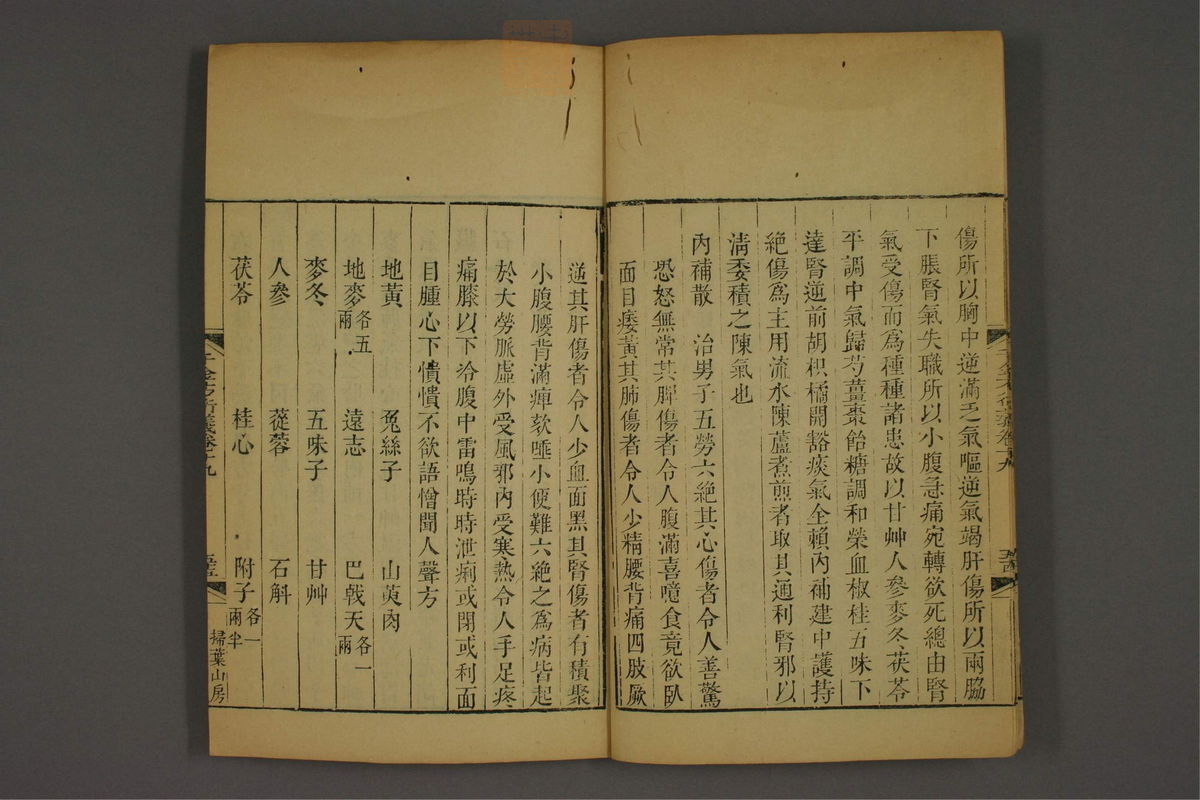 傷所以胸中逆滿乏氣嘔逆氣竭肝傷所以兩脇
下脹腎氣失職所以小腹急痛宛轉欲死總由腎
氣受傷而爲種種諸患故以甘艸人參麥冬茯苓
平調中氣歸芍薑棗飴糖調和榮血椒桂五味下
達腎逆前胡枳橘開豁痰氣全賴內補建中護持
絶傷爲主用流水陳蘆煮煎者取其通利腎邪以
淸委積之陳氣也
內補散　治男子五勞六絶其心傷者令人善驚
恐怒無常其脾傷者令人腹滿喜噫食竟欲臥
面目痿黃其肺傷者令人少精腰背痛四肢厥
逆其肝傷者令人少血面黑其腎傷者有積聚
小腹腰背滿痺欬唾小便難六絶之爲病皆起
於大勞脈虛外受風邪內受寒熱令人手足疼
痛膝以下冷腹中雷鳴時時泄痢或閉或利面
目腫心下憒憒不欲語憎聞人聲方
地黃　菟絲子　山茱肉
地麥各五兩　遠志　巴戟天各一兩
麥冬　五味子　甘艸
人參　蓯蓉　石斛
茯苓　桂心　附子各一兩半
千金方衍義卷十九
掃葉山房